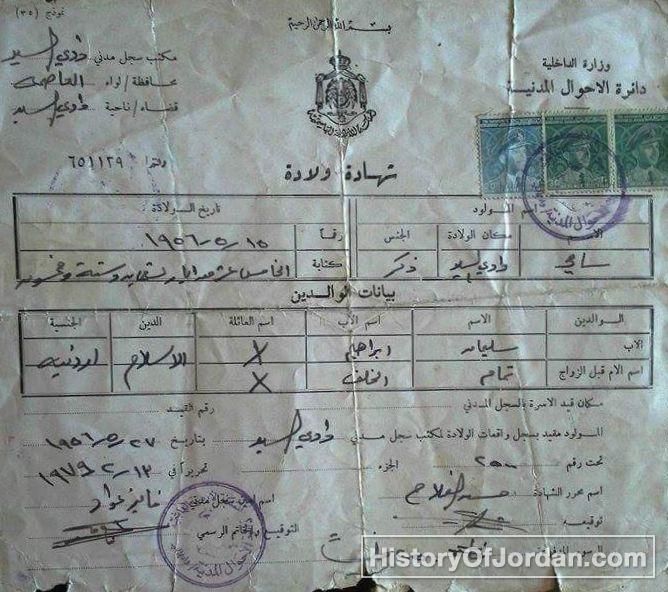 نموذج (٣٥)
بسم الله الرحمن الرحيم
وزارة الداخلية
دائرة الاحوال المدنية
مكتب سجل مدني وادي السير
محافظة / لواء العاصمة
قضاء / ناحية وادي السير
٦٥١١٢٩
شهادة ولادة
اسم المولود
تاريخ الولادة
الاسم
مكان الولادة
الجنس
رقماً
١٥ ٥ ١٩٥٦
سامي
وادي السير
ذكر
كتابة
الخامس عشر من ايار وستة وخمسون
بيانات الوالدين
الوالدين
الاسم
اسم الأب
اسم العائلة
الدين
الجنسية
الاب
سليمان
ابراهيم
X
الاسلام
اردنية
اسم الام قبل الزواج
تمام
الخلف
X
مكان قيد الاسرة بالسجل المدني
رقم القيد
المولود مقيد بسجل واقعات الولادة لمكتب سجل مدني وادي السير بتاريخ ٢٧ ٥ ١٩٥٦
تحت رقم ٢٥٠ الجزء
تحريراً في ١٣ ٢ ١٩٧٩
اسم محرر الشهادة
اسم امين سجل مدني فايز عواد
توقيعه
التوقيع والخاتم الرسمي
الاحوال المدنية
HistoryOfJordan.com